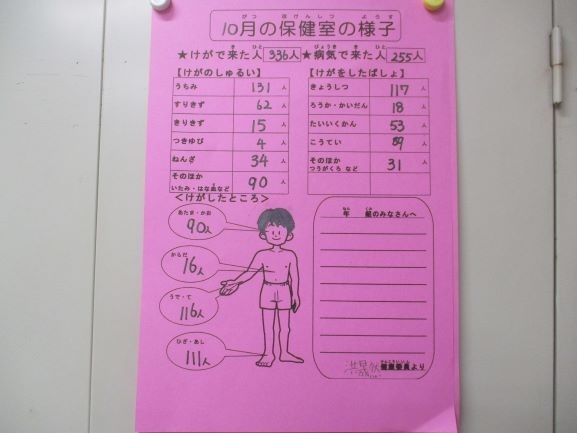 10月の保健室の様子
がつ ほけんしつ ようす
★けがで来た人 336人 ★病気で来た人 255人
【けがのしゅるい】
うちみ 131人
すりきず 62人
きりきず 15人
つきゆび 4人
ねんざ 34人
そのほか
いたみ・はな血など 90人
【けがをしたばしょ】
きょうしつ 117人
ろうか・かいだん 18人
たいいくかん 53人
こうてい 89人
そのほか
つうがくろ など 31人
<けがしたところ>
あたま・かお
90人
からだ
16人
うで・て
116人
ひざ・あし
111人
年 組のみなさんへ
健康委員より